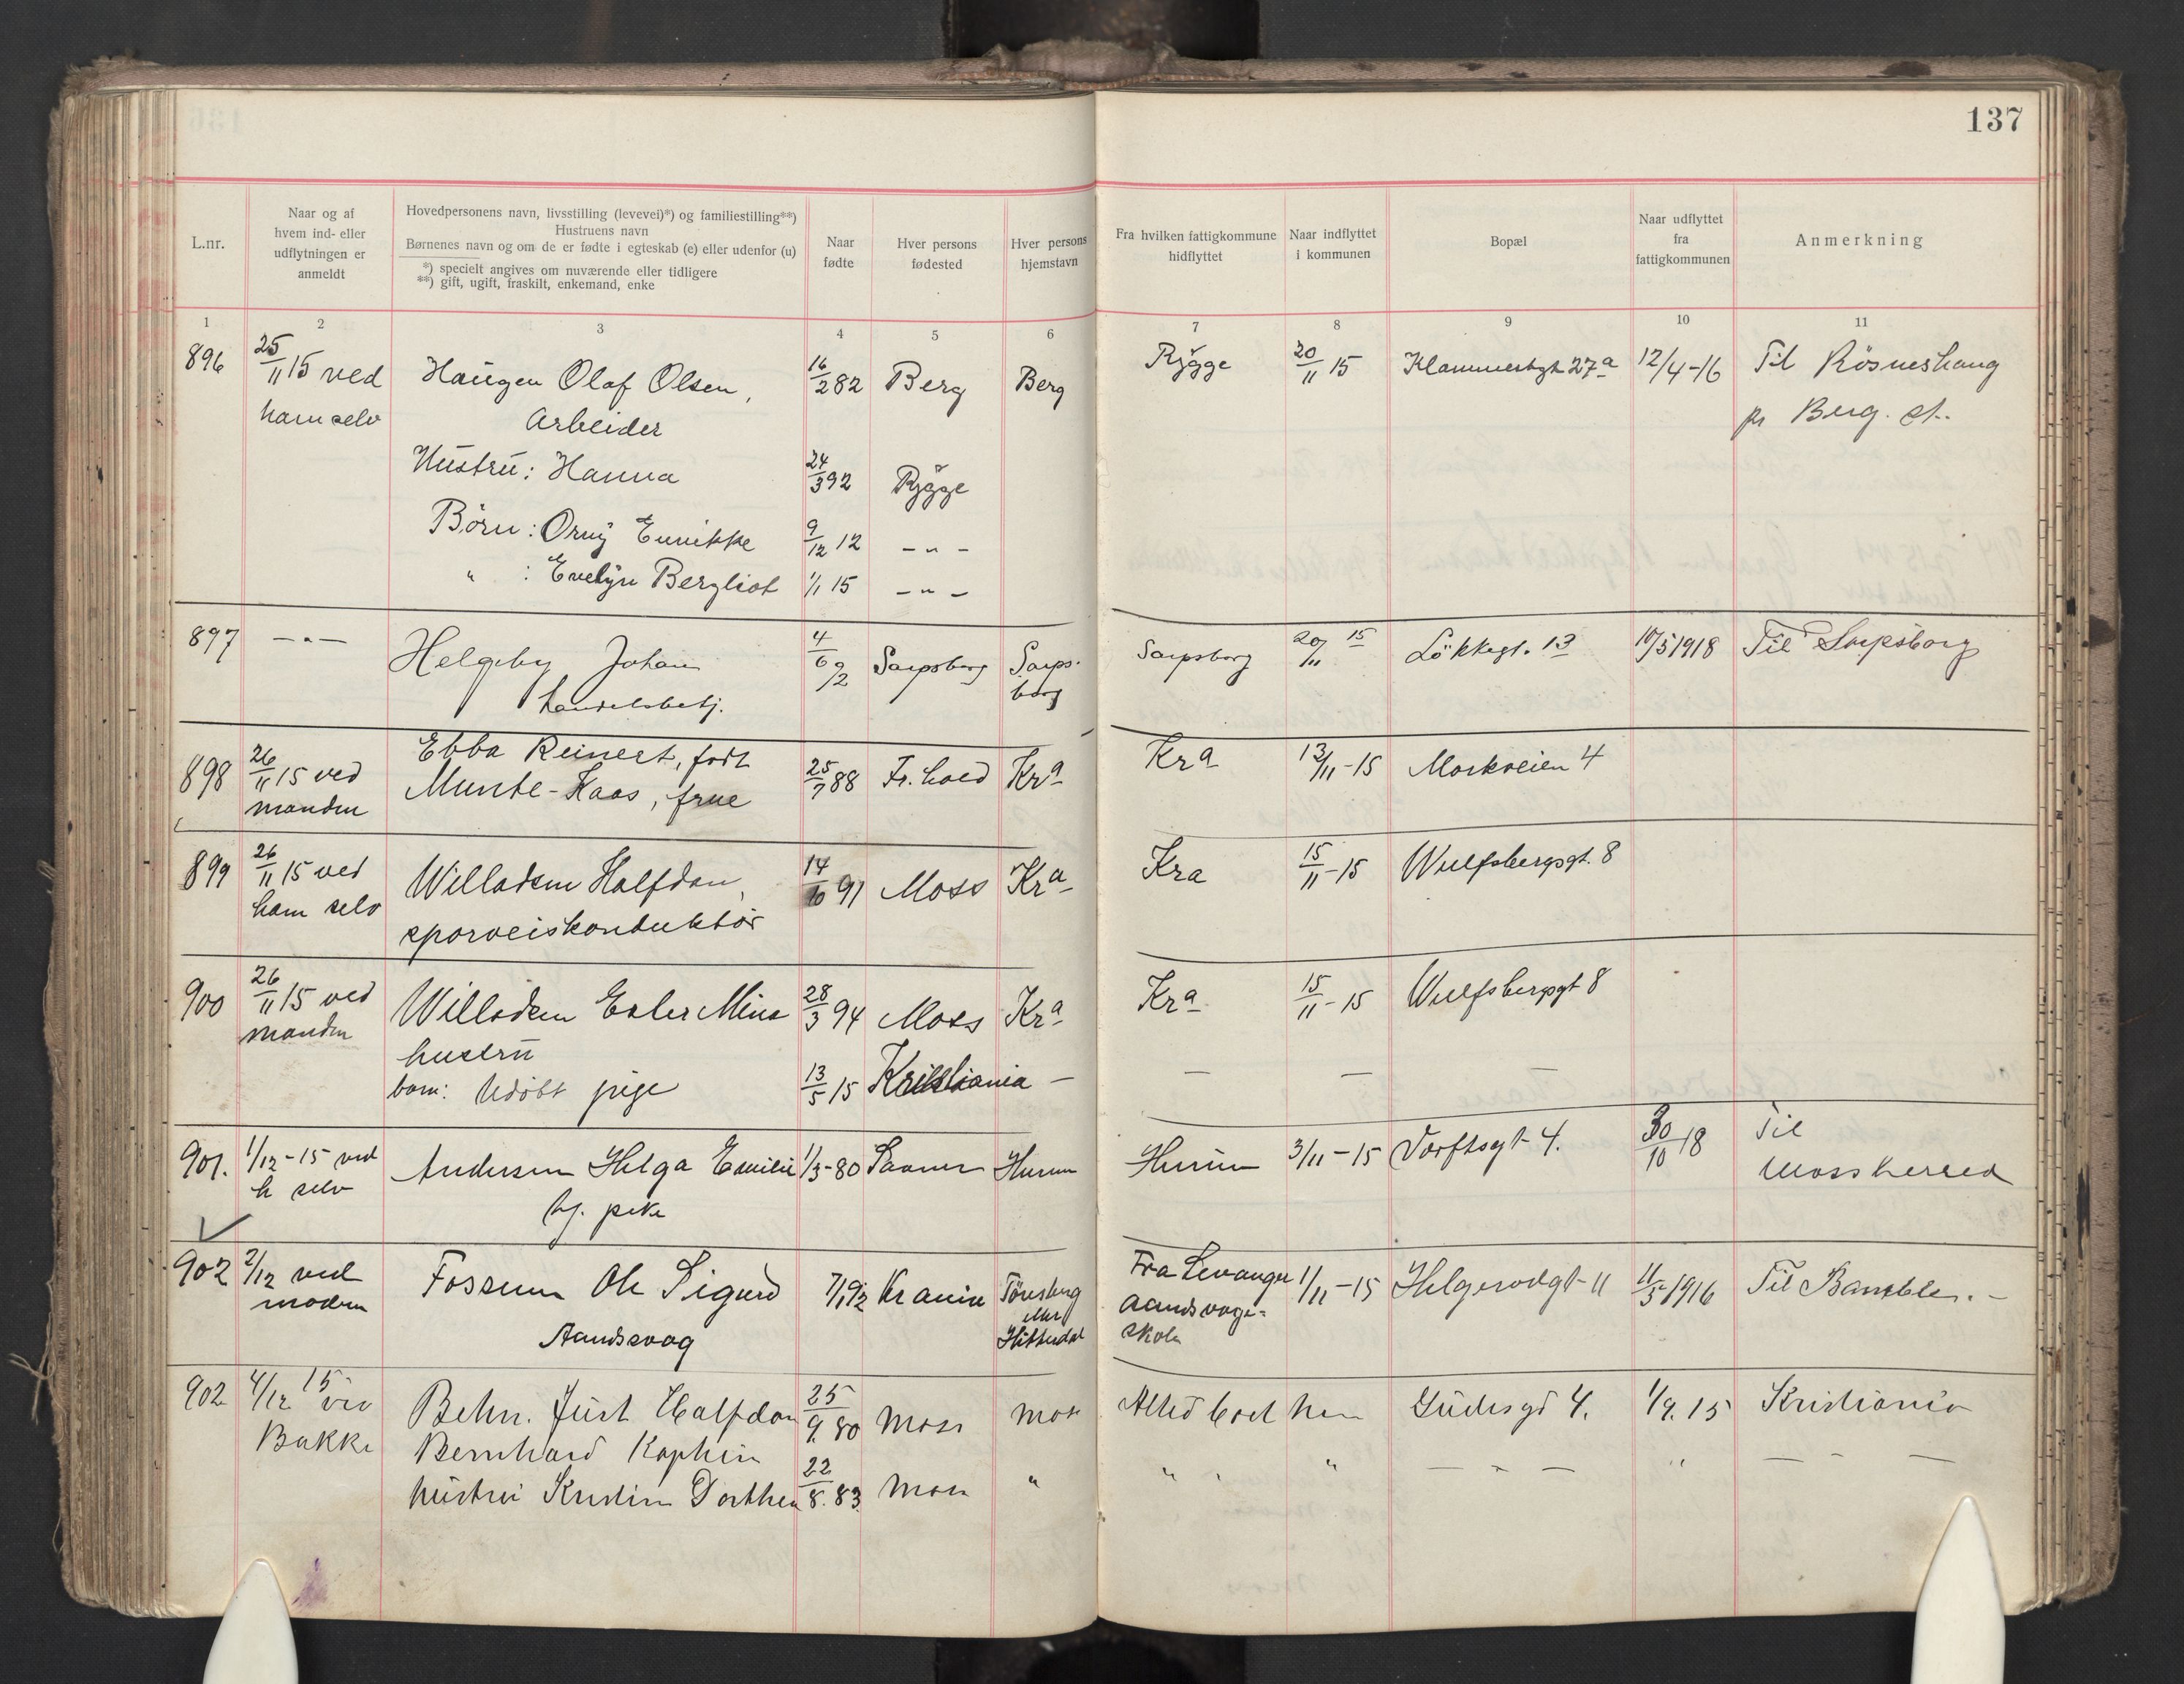 137
L.nr.
Naar og af
hvem ind- eller
udflytningen er
anmeldt
Hovedpersonens navn, livsstilling (levevei)*) og familiestilling**)
Hustruens navn
Børnenes navn og om de er fødte i egteskab (e) eller udenfor (u)
*) specielt angives om nuværende eller tidligere
**) gift, ugift, fraskilt, enkemand, enke
Naar
fødte
Hver persons
fødested
Hver persons
hjemstavn
Fra hvilken fattigkommune
hidflyttet
Naar indflyttet
i kommunen
Bopæl
Naar udflyttet
fra
fattigkommunen
Anmerkning
1 2 3 4 5 6 7 8 9 10 11
896 25/11 15 ved Haugen Olaf Olsen, 16/2 82 Berg Berg Rygge 20/11 15 27a 12/4-16 Til Rösneshaug
ham selv Arbeider pr Berg. st.
Hustru: Hanna 24/3 92 Rygge
Børn: Orny Ennikke 9/12 12 - " -
" : Evelyn Bergliot 1/1 15 - " -
897 - " - Helgeby Johan 4/6 92 Sarpsborg Sarps- Sarpsborg 20/11 15 Løkkegt. 13 10/5 1918 Til Sarpsborg
handelsbetj. borg
898 26/11 15 ved Ebba Reinert, født 25/7 88 Fr.hald Kra Kra 13/11-15 Moskveien 4
manden Munte-Kaas, frue
899 26/11 15 ved Willadsen Halfdan, 14/10 91 Moss Kra Kra 15/11-15 Wulfsbergsgt. 8
ham selv sporveiskonduktør
900 26/11 15 ved Willadsen Ester Mina 28/3 94 Moss Kra Kra 15/11-15 Wulfsbergsgt 8
manden hustru
barn: Udøbt pige 13/5 15 Kristiania - - - -
901. 1/12-15 ved Andersen Helga Emilie 1/3-80 Saaner Hurum Hurum 3/11-15 Værftsgt 4. 30/10 18 Til
h selv tj. pike Moss herred
902 2/12 ved Fossum Ole Sigurd 7/1 92 Krania Tönsberg Fra Levanger 1/11-15 Helgerødgt 11 11/5 1916 Til Bamble. -
modern Aandssvag eller Hitterdal Aandssvage-
skole
902 4/12 15 ved Behn. Just Halfdan 25/9. 80 Moss Moss Altid boet her Gudesgd 4. 1/9. 15 Kristiania
Bakke Bernhard Kaphin
hustru Kristine Dorthea 22/8. 83 Moss " " " " - " - " - " -